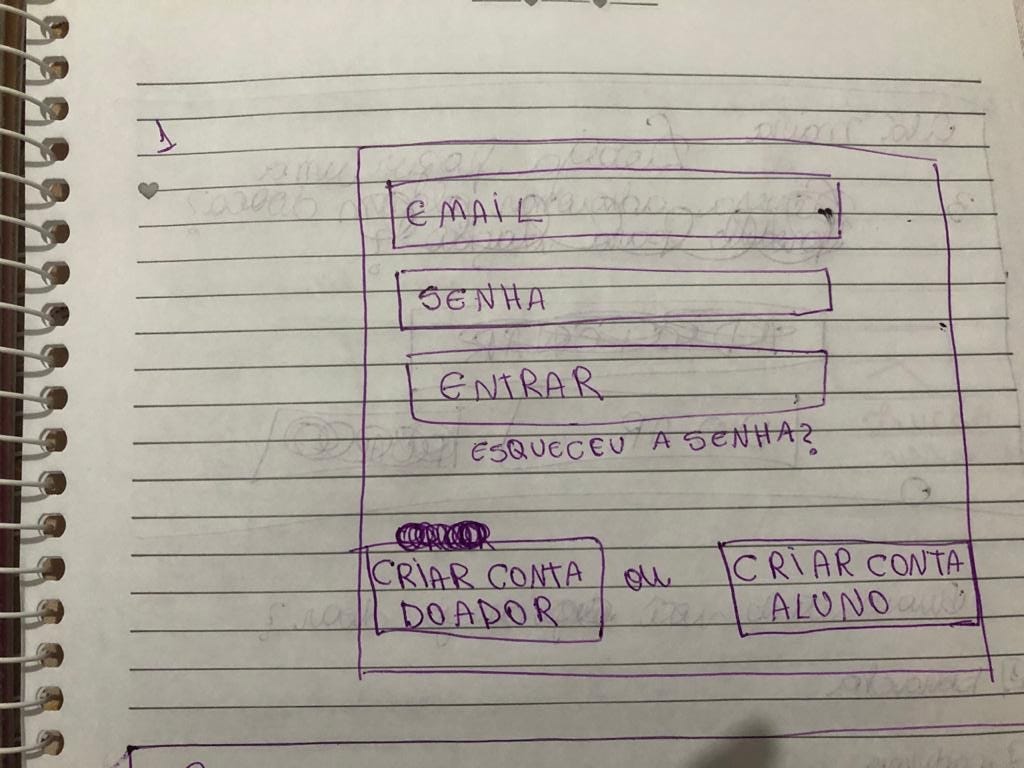 1
EMAIL
SENHA
ENTRAR
ESQUECEU A SENHA?
CRIAR CONTA
DOADOR
ou
CRIAR CONTA
ALUNO